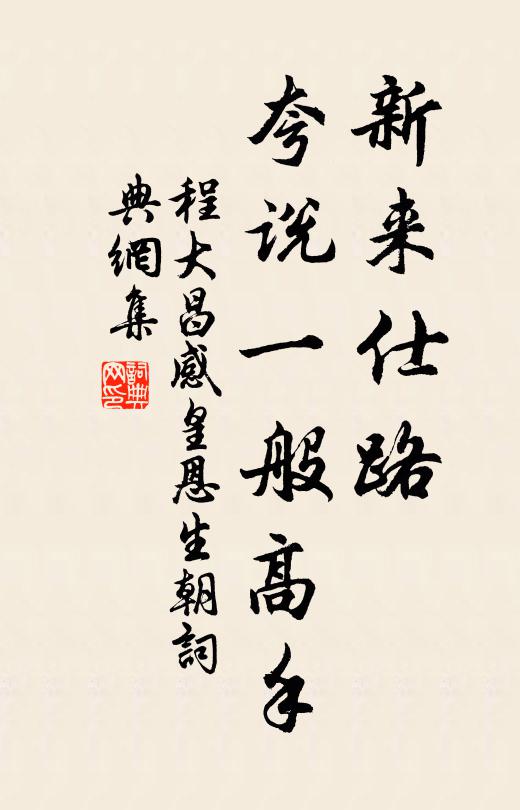 新来仕路
夸说一般高手
程大昌感皇恩生朝詞
典網集
詞典
网印